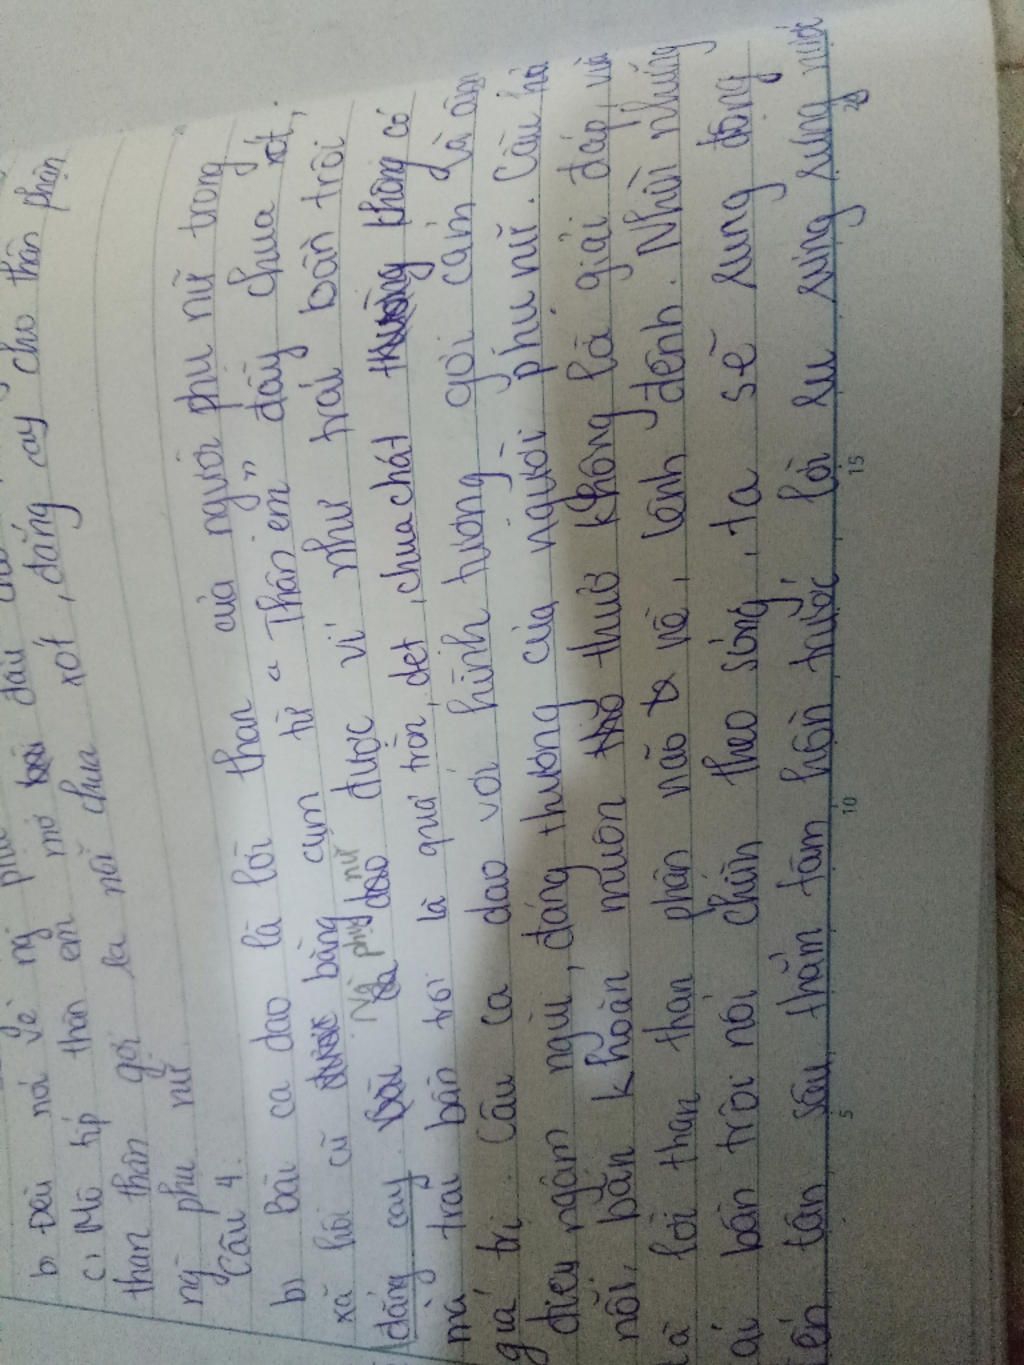 b, Đều nói về ng
c, Mô típ thân em mở đầu chua xót, đắng cay cho thân phận
than thân gợi ra nỗi
ng phụ nữ
Câu 4.
b, bài ca dao là lời than của người phụ nữ trong
xã hội cũ bằng cụm từ "Thân em" đầy chua xót,
đắng cay. Người phụ nữ được ví như trái bần trôi
mà trái bần trôi là quả tròn, dẹt, chua chát không có
giá trị. Câu ca dao với hình tượng gợi cảm và âm
điệu ngậm ngùi, đáng thương của người phụ nữ. Câu hỏi
nổi, băn khoăn muôn thuở không lời giải đáp, và
là lời than thân phận não nề, lênh đênh. Nhìn những
ái bần trôi nổi chìm theo sóng, ta sẽ rung động
ến tận sâu thẳm tâm hồn trước lời ru rưng rưng nước
5 10 15 20